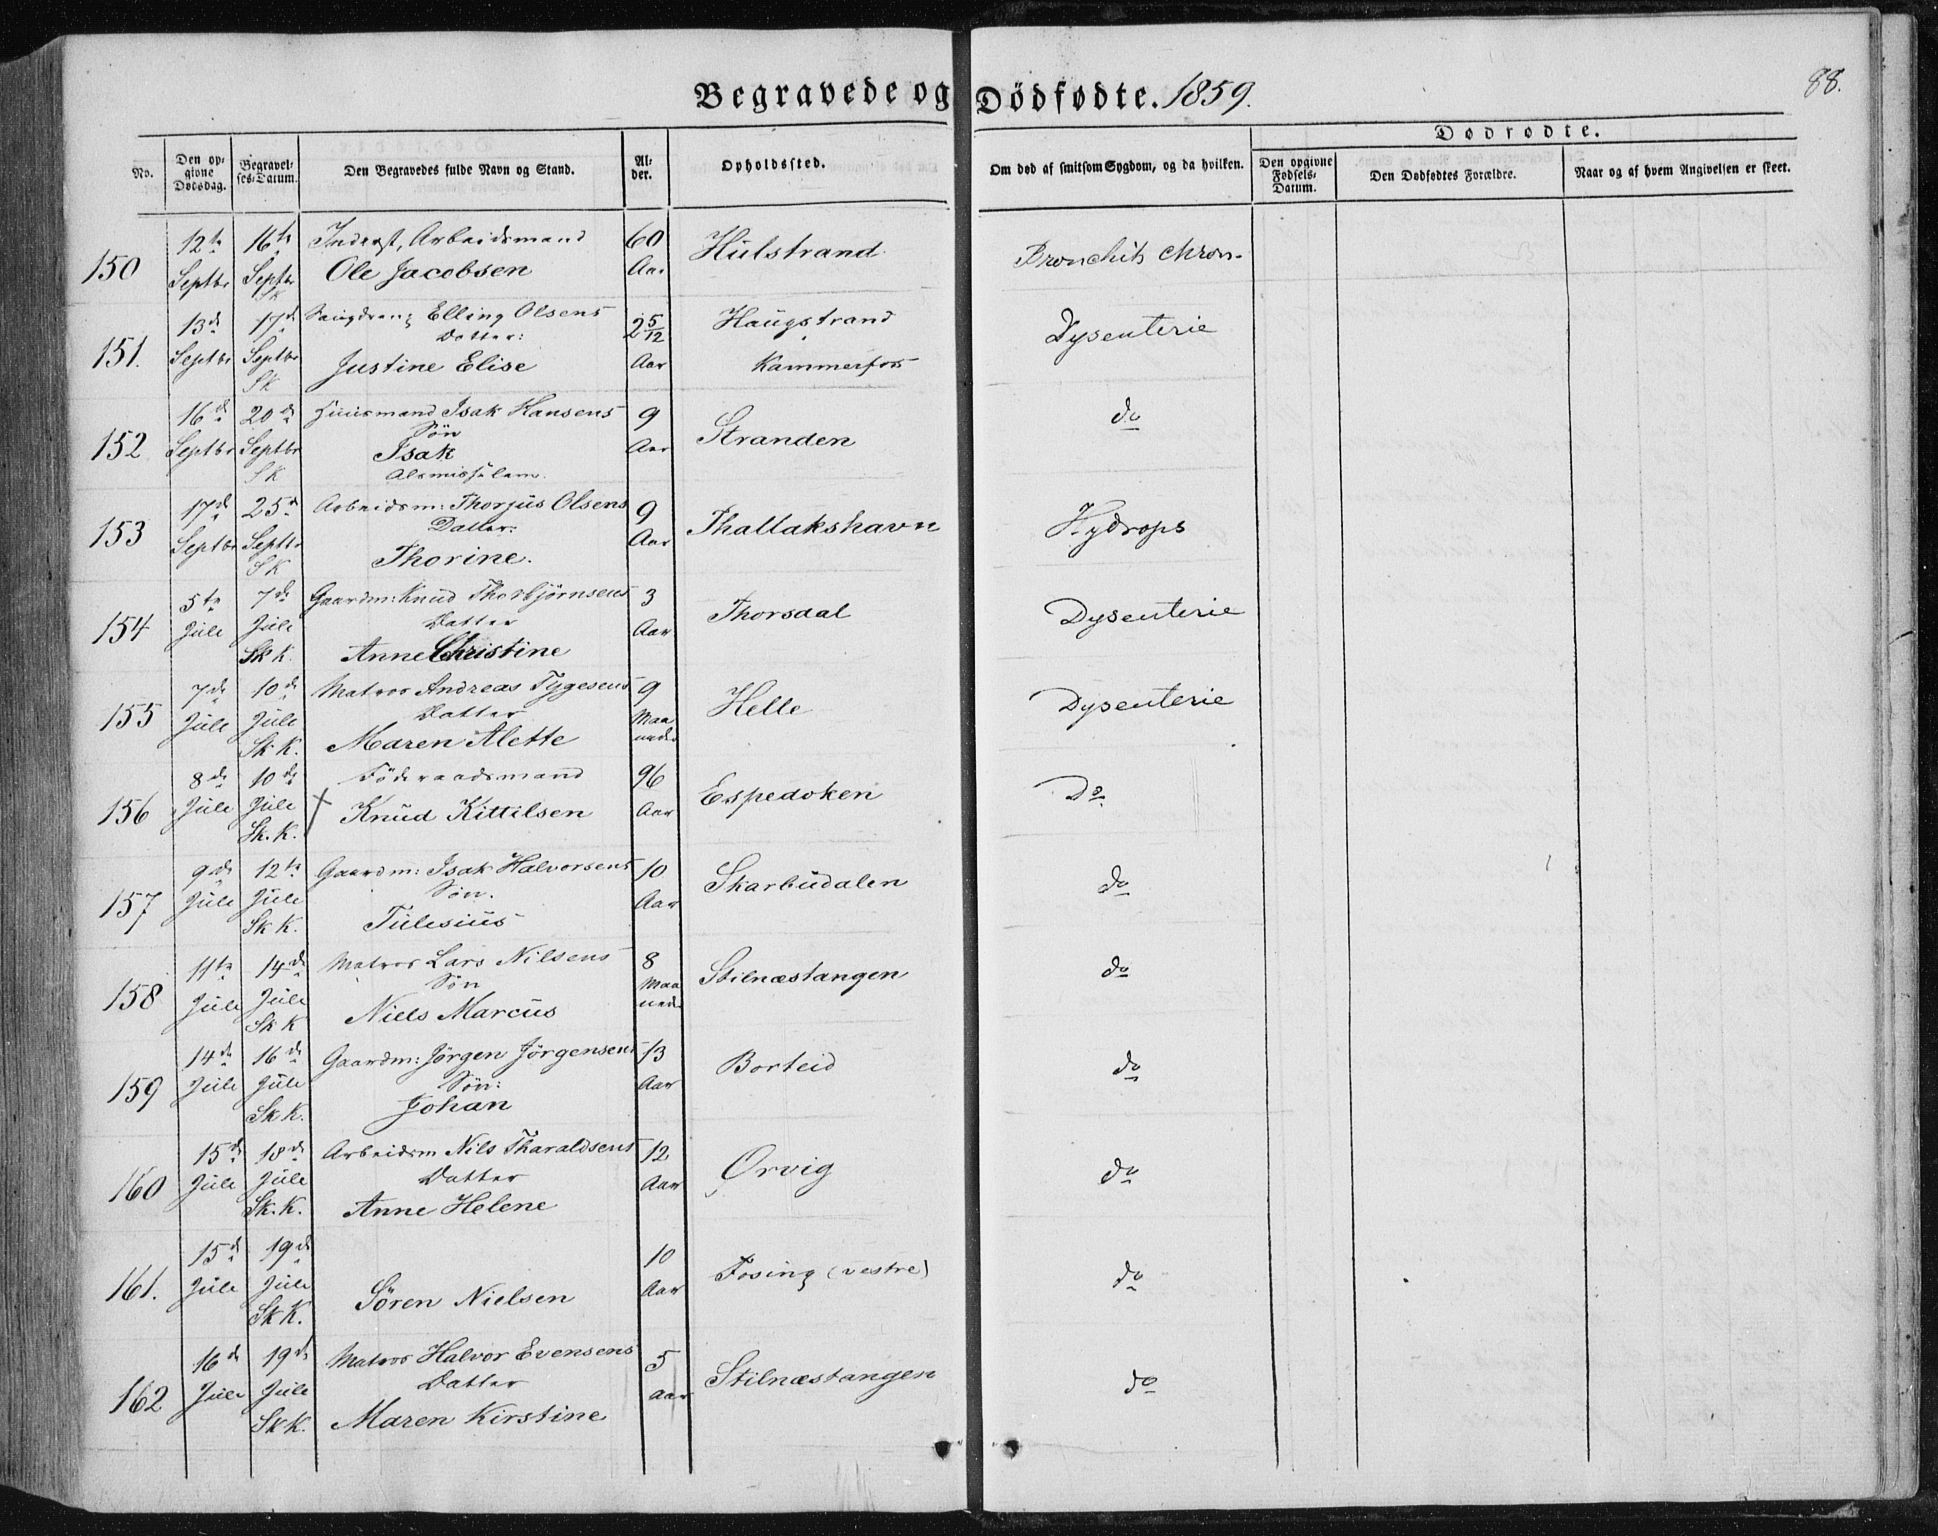 Begravede og Dødfødte. 1859.
88.
Dødfødte.
No.
Den opgivne Dødsdag.
Begravelses-Datum.
Den Begravedes fulde Navn og Stand.
Alder.
Opholdssted.
Om død af smitsom Sygdom, og da hvilken.
Den opgivne Fødsels-Datum.
Den Dødfødtes Forældre.
Naar og af hvem Angivelsen er skeet.
150 12te Septbr 16te Septbr Sk Inderst, Arbeidsmand 60 Aar Hulstrand Bronchits chron.
Ole Jacobsen
151. 13de Septbr 17de Septbr Sk Elling Olsens 2 5/12 Aar Haugstrand Dysenterie
Datter:
Justine Elise Kammerfos
152 16de Septbr 20de Septbr Sk Huusmand Isak Hansens 9 Aar Stranden do
Søn
Isak
Almisselem.
153 17de Septbr 25de Septbr Sk Arbeidsm: Thorjus Olsens 9 Aar Thallakshavn Hydrops
Datter:
Thorine.
154 5te Jule 7de Jule Sk K. Gaardm: Knud Thorbjørnsens 3 Aar Thorsdal Dysenterie
Datter
Anne Christine
155 7de Jule 10de Jule Sk K. Matros Andreas Tygesens 9 Maaneder Helle Dysenterie
Datter
Maren Alette
156 8de Jule 10de Jule Sk. K. Føderaadsmand 96 Aar Espedoken Do
Knud Kittilsen
157 9de Jule 12te Jule Sk K. Gaardm: Isak Halvorsens 10 Aar Skarbudalen do
Søn.
Tulesius
158 11te Jule 14de Jule Sk K Matros Lars Nilsens 8 Maaneder Stilnæstangen do
Søn
Niels Marcus
159 14de Jule 16de Jule Sk K. Gaardm: Jørgen Jørgensens 13 Aar Borteid do
Søn:
Johan
160 15de Jule 18de Jule Sk. K. Arbeidsm Nils Tharaldsens 12 Aar Ørvig do
Datter
Anne Helene
161. 15de Jule 19de Jule Sk K. 10 Aar Fosing (vestre) do
Søren Nielsen
162 16de Jule 19de Jule Sk K. Matros Halvor Evensens 5 Aar Stilnæstangen do
Datter
Maren Kirstine